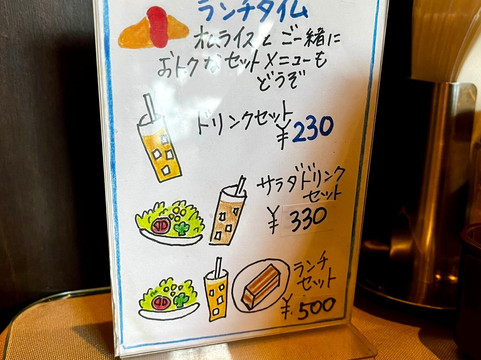 ランチタイム
オムライスとご一緒に
おトクなセットメニューも
どうぞ
ドリンクセット
¥230
サラダドリンク
セット
¥330
ランチ
セット
¥500